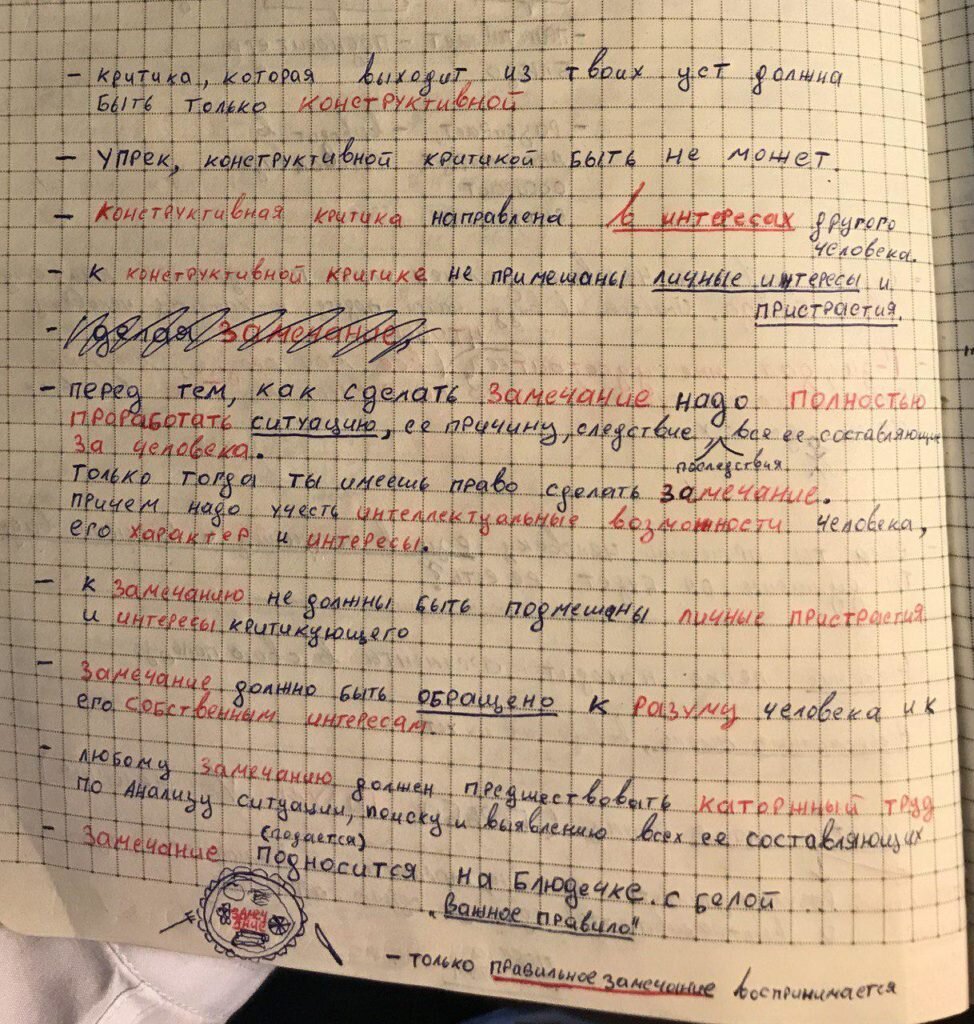 - критика, которая выходит из твоих уст должна
быть только конструктивной
- упрек, конструктивной критикой быть не может.
- конструктивная критика направлена в интересах другого
человека.
- к конструктивной критике не примешаны личные интересы и
пристрастия.
- делая замечание,
- перед тем, как сделать замечание надо полностью
проработать ситуацию, ее причину, следствие, все ее составляющие
последствия
за человека.
только тогда ты имеешь право сделать замечание.
причем надо учесть интеллектуальные возможности человека,
его характер и интересы.
- к замечанию не должны быть подмешаны личные пристрастия
и интересы критикующего
- замечание должно быть обращено к разуму человека и к
его собственным интересам.
- любому замечанию должен предшествовать каторжный труд
по анализу ситуации, поиску и выявлению всех ее составляющих
(подается)
- замечание подносится на блюдечке с белой
замеч
ание
"важное правило"
- только правильное замечание воспринимается